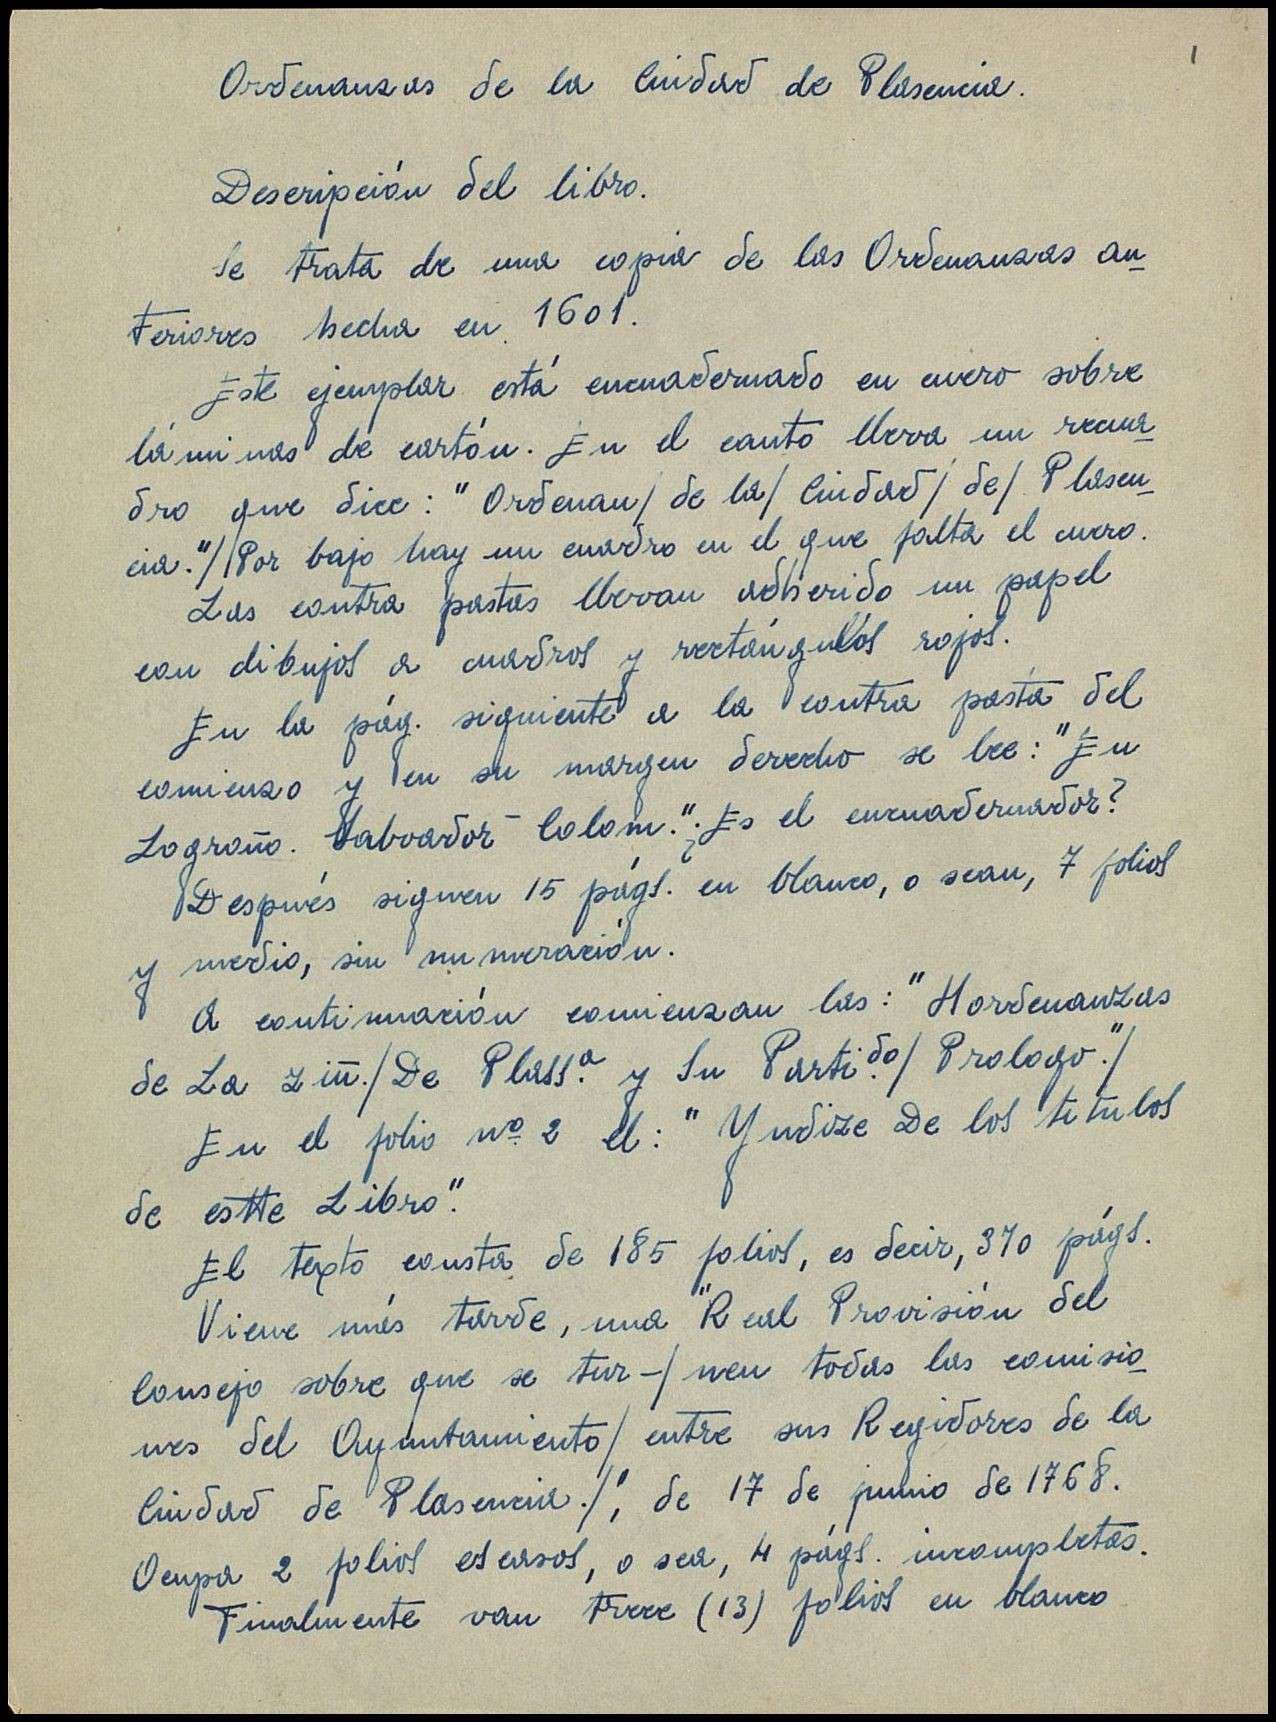 1
Ordenanzas de la Ciudad de Plasencia.
Descripción del libro.
Se trata de una copia de las Ordenanzas an-
teriores hecha en 1601.
Este ejemplar está encuadernado en cuero sobre
láminas de cartón. En el canto lleva un recua-
dro que dice: "Ordenan/ de la/ Ciudad/ de/ Plasen-
cia."/ Por bajo hay un cuadro en el que falta el cuero.
Las contra pastas llevan adherido un papel
con dibujos a cuadros y rectángulos rojos.
En la pág. siguiente a la contra pasta del
comienzo y en su margen derecho se lee: "En
Logroño. Labrador Colom." ¿Es el encuadernador?
Después siguen 15 págs. en blanco, o sean, 7 folios
y medio, sin numeración.
A continuación comienzan las: "Hordenanzas
de La Ziu./ De Plass.ª y Su Parti.do/ Prologo."/
En el folio nº 2 el: "Yndize De los titulos
de estte Libro".
El texto consta de 185 folios, es decir, 370 págs.
Viene más tarde, una "Real Provisión del
Consejo sobre que se tur-/ nen todas las comisio-
nes del Ayuntamiento/ entre sus Regidores de la
Ciudad de Plasencia./", de 17 de junio de 1768.
Ocupa 2 folios escasos, o sea, 4 págs. incompletas.
Finalmente van trece (13) folios en blanco